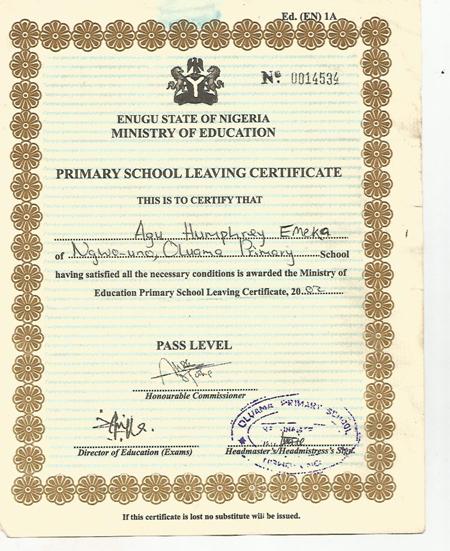 Ed. (EN) 1A
Nº 0014534
ENUGU STATE OF NIGERIA
MINISTRY OF EDUCATION
PRIMARY SCHOOL LEAVING CERTIFICATE
THIS IS TO CERTIFY THAT
Agu Humphrey Emeka
of Ngwo-uno, Oluama Primary School
having satisfied all the necessary conditions is awarded the Ministry of
Education Primary School Leaving Certificate, 2002
PASS LEVEL
Honourable Commissioner
OLUAMA PRIMARY SCHOOL
Director of Education (Exams) Headmaster's/Headmistress's Sign.
If this certificate is lost no substitute will be issued.